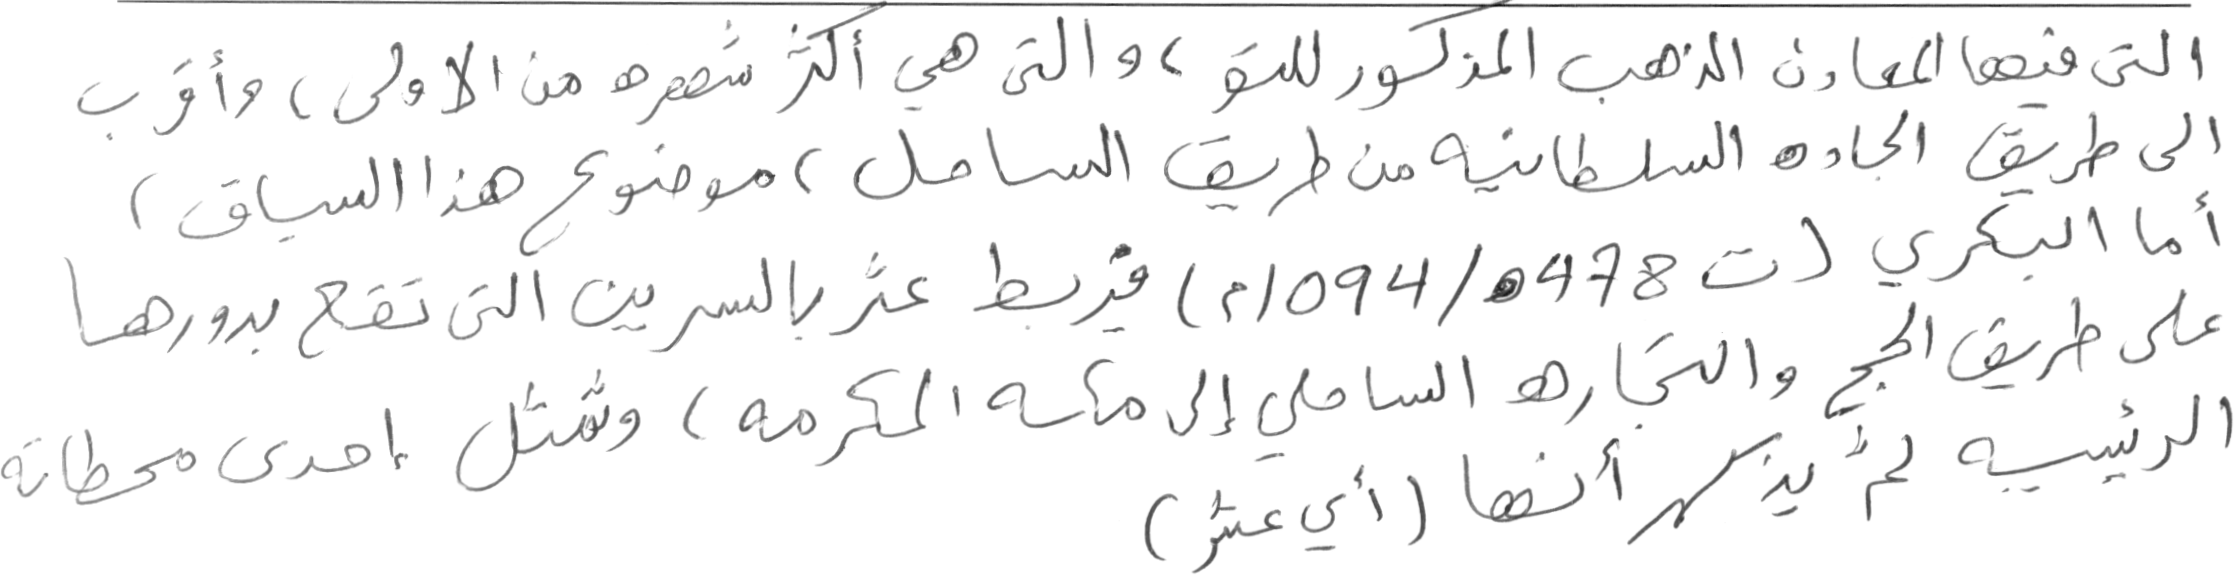 التى فيها المعادن الذهب المذكور للتو، والتى هي أكثر شهره من الاولى، وأقرب
الى طريق الجاده السلطانيه من طريق الساحل، موضوع هذا السياق،
أما البكري (ت 478ه/1094م) فيربط عثر بالسرين التى تقع بدورها
على طريق الحج والتجاره الساحلي إلى مكه المكرمه، وتمثل إحدى محطاته
الرئيسيه ثم يذكر أنها (أي عثر)